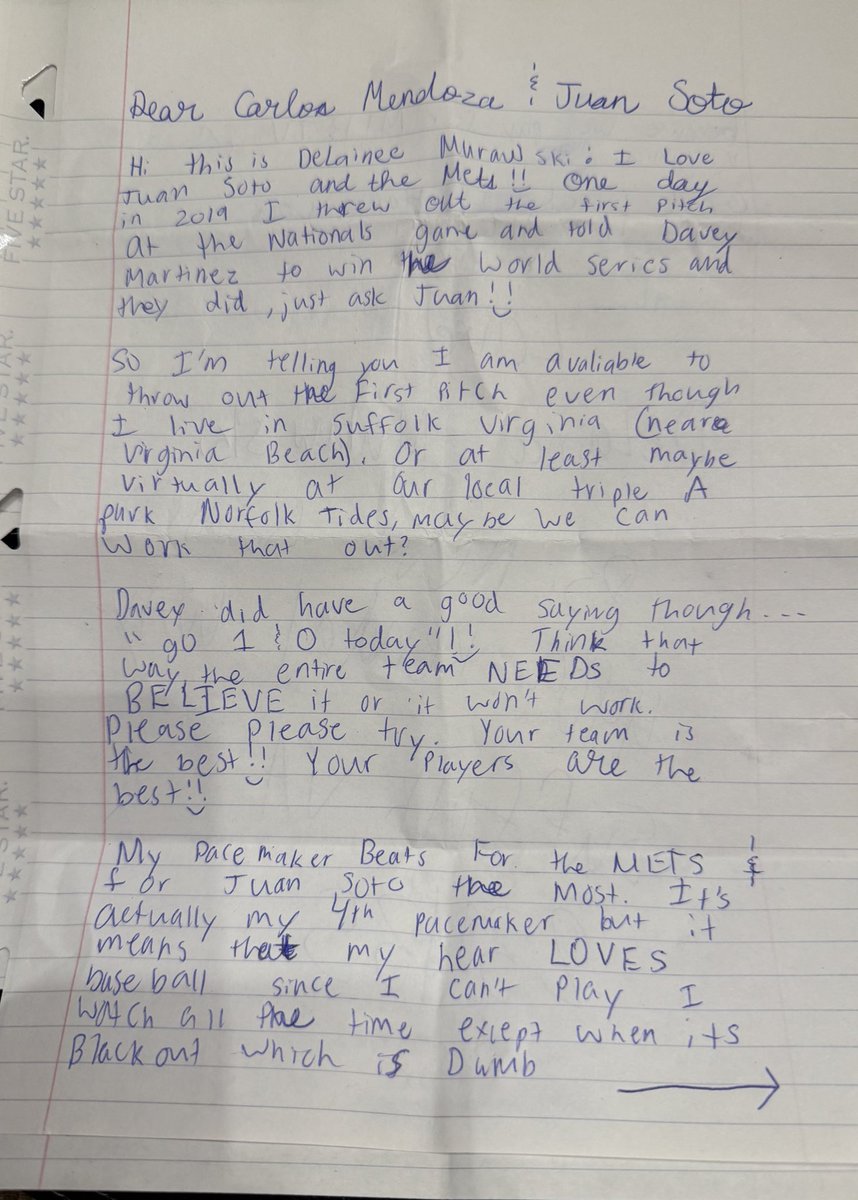 Dear Carlos Mendoza & Juan Soto
Hi this is Delainee Murawski: I Love
Juan Soto and the Mets!! One day
in 2019 I threw out the first Pitch
at the Nationals game and told Davey
Martinez to win the World Series and
they did, just ask Juan!!
So I'm telling you I am avaliable to
throw out the First Pitch even though
I live in Suffolk Virginia (neare
Virginia Beach). Or at least maybe
virtually at our local triple A
park Norfolk Tides, maybe we can
Work that out?
Davey did have a good saying though...
"go 1 & 0 today"!! Think that
way, the entire team NEEDs to
BELIEVE it or it won't work.
Please please try. Your team is
the best!! Your Players are the
best!!
My Pacemaker Beats For the METS &
for Juan Soto the Most. It's
actually my 4th pacemaker but it
means that my hear LOVES
baseball since I can't Play I
Watch all the time except when its
Blackout which is Dumb
FIVE STAR.
FIVE STAR.
STAR.